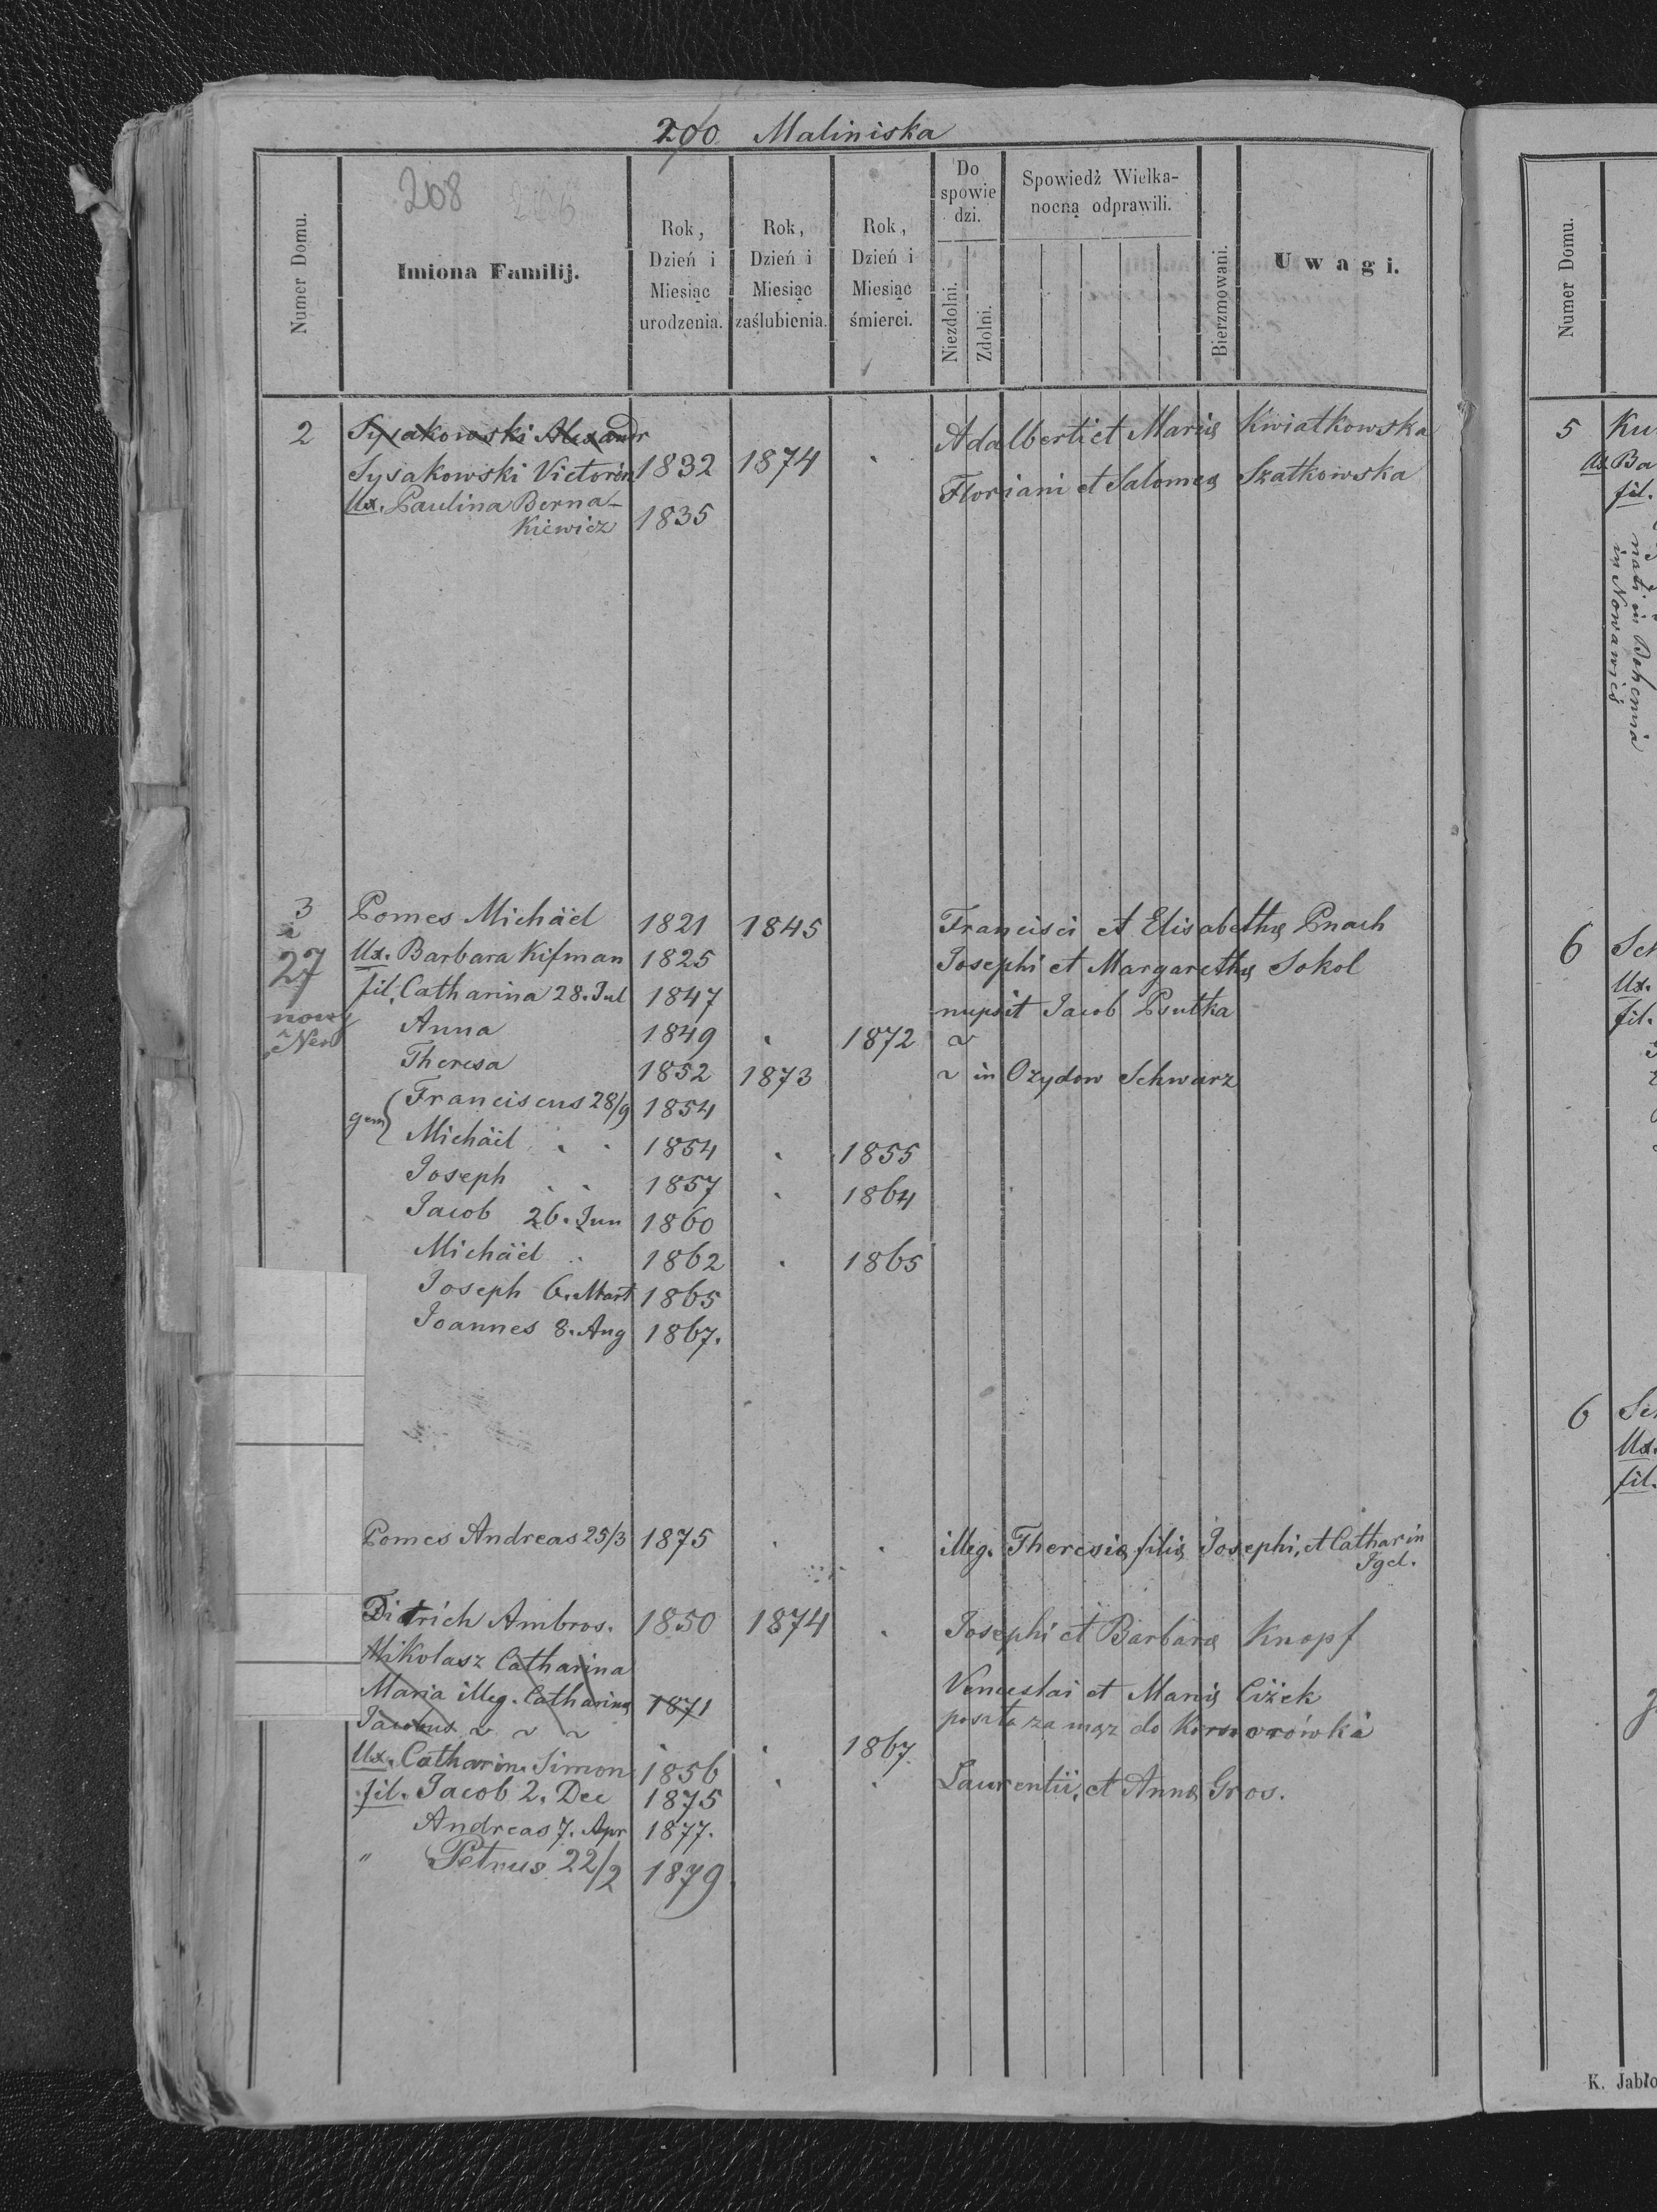 200 Maliniska
208 206
Numer Domu.
Imiona Familij.
Rok, Dzień i Miesiąc urodzenia.
Rok, Dzień i Miesiąc zaślubienia.
Rok, Dzień i Miesiąc śmierci.
Do spowiedzi.
Niezdolni.
Zdolni.
Spowiedź Wielkanocną odprawili.
Bierzmowani.
Uwagi.
2 Sysakowski Alexandr Adalberti et Mariæ Kwiatkowska
Sysakowski Victorin 1832 1874 Floriani et Salomeæ Szatkowska
Ux. Paulina Berna-
kiewicz 1835
3 Pomes Michäel 1821 1845 Francisci et Elisabethæ Pnach
27 Ux. Barbara Kifman 1825 Josephi et Margarethæ Sokol
fil. Catharina 28. Jul 1847 nupsit Jacob Psutka
nowy Anna 1849 1872 ~
Nro Theresa 1852 1873 ~ in Ożydow Schwarz
gem Franciscus 28/9 1854
Michäel 1854 1855
Joseph 1857 1864
Jacob 26. Jun 1860
Michäel 1862 1865
Joseph 6. Mart 1865
Joannes 8. Aug 1867.
Pomes Andreas 25/3 1875 illeg. Theresiæ filiæ Josephi, et Catharin
Igel.
Ditrich Ambros. 1850 1874 Josephi et Barbaræ Knopf
Mikolasz Catharina Venceslai et Mariæ Ciżek
Maria illeg. Catharinæ 1871 poszła za mąż do
Jacobus ~ ~ ~ 1867.
Ux. Catharin. Simon 1856 Laurentii, et Annæ Gros.
fil. Jacob 2. Dec 1875
Andreas 7. Apr 1877.
" Petrus 22/2 1879.
Numer Domu.
5 Ku
Ux. Ba
fil.
nati in Bohemia
in Nowawieś
6 Sch
Ux.
fil.
6 Sch
Ux.
fil.
K. Jabło